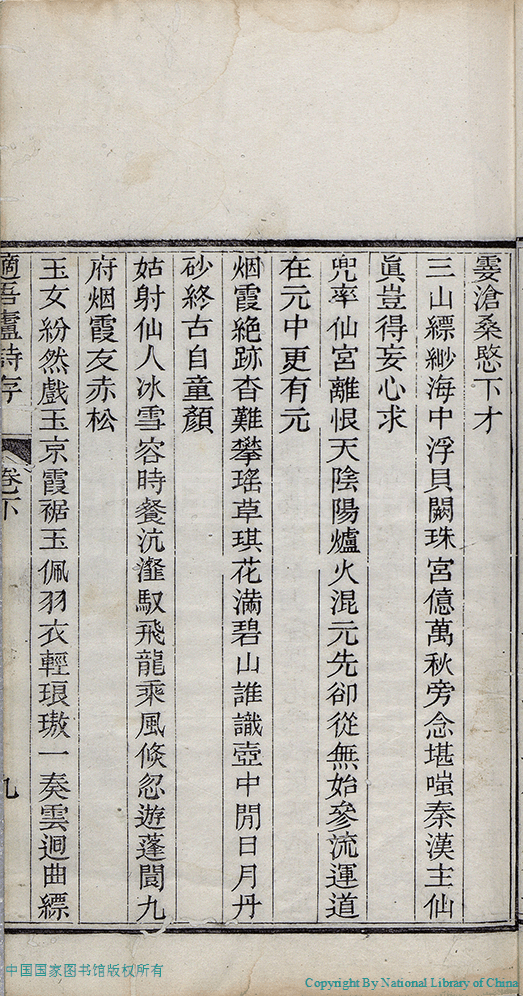 雲滄桑愍下才
三山縹緲海中浮貝闕珠宮億萬秋旁念堪嗤秦漢主仙
眞豈得妄心求
兜率仙宮離恨天陰陽爐火混元先卻從無始參流運道
在元中更有元
烟霞絶跡杳難攀瑤草琪花滿碧山誰識壺中閒日月丹
砂終古自童顏
姑射仙人冰雪容時餐沆瀣馭飛龍乘風倏忽遊蓬閬九
府烟霞友赤松
玉女紛然戲玉京霞裾玉佩羽衣輕琅璈一奏雲迴曲縹
適吾廬詩存
卷下
九
中国国家图书馆版权所有
Copyright By National Library of China